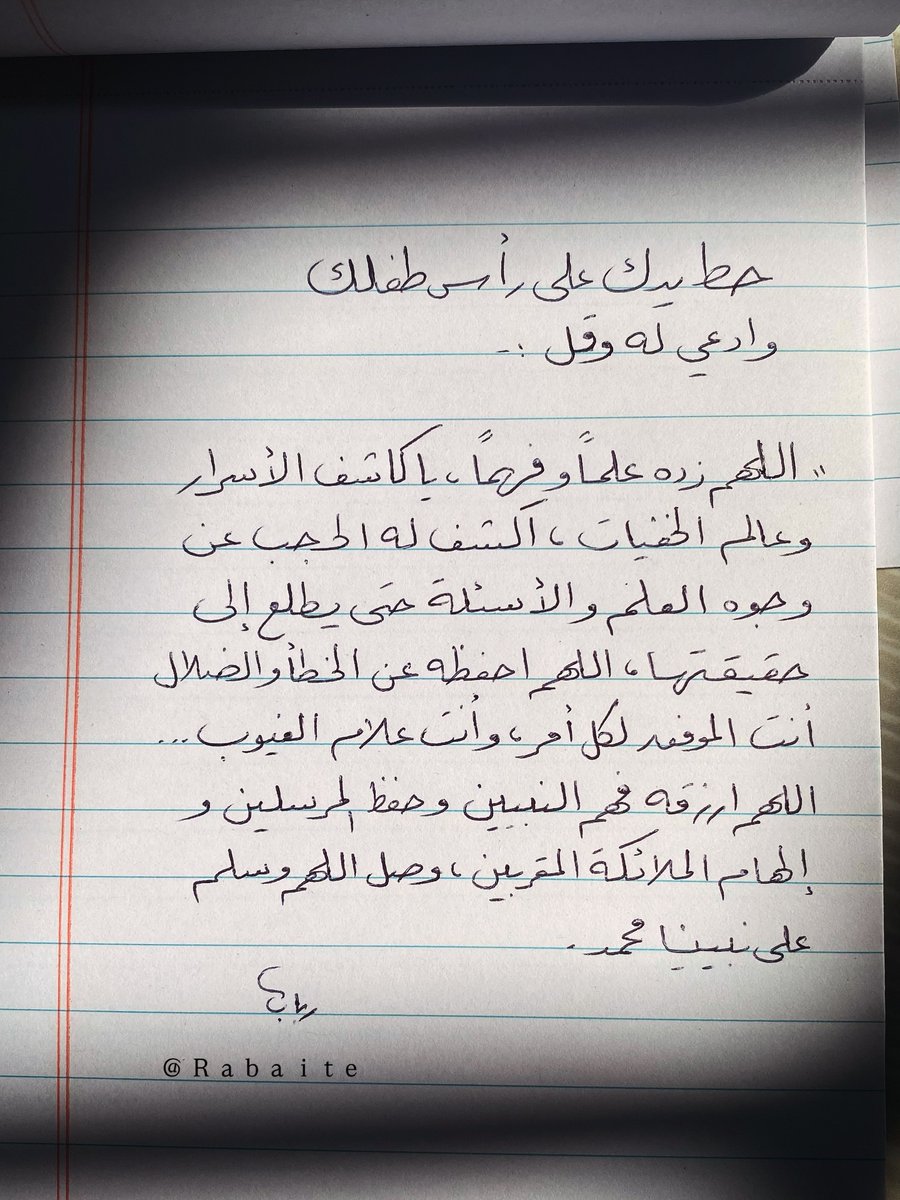 حط يدك على رأس طفلك
وادعي له وقل :-
" اللهم زده علماً وفهماً، ياكاشف الأسرار
وعالم الخفيات، اكشف له الحجب عن
وجوه العلم والأسئلة حتى يطلع إلى
حقيقتها، اللهم احفظه عن الخطأ والضلال
أنت الموفق لكل أمر، وأنت علام الغيوب...
اللهم ارزقه فهم النبيين وحفظ المرسلين و
إلهام الملائكة المقربين، وصل اللهم وسلم
على نبينا محمد.
رباب
@Rabaite